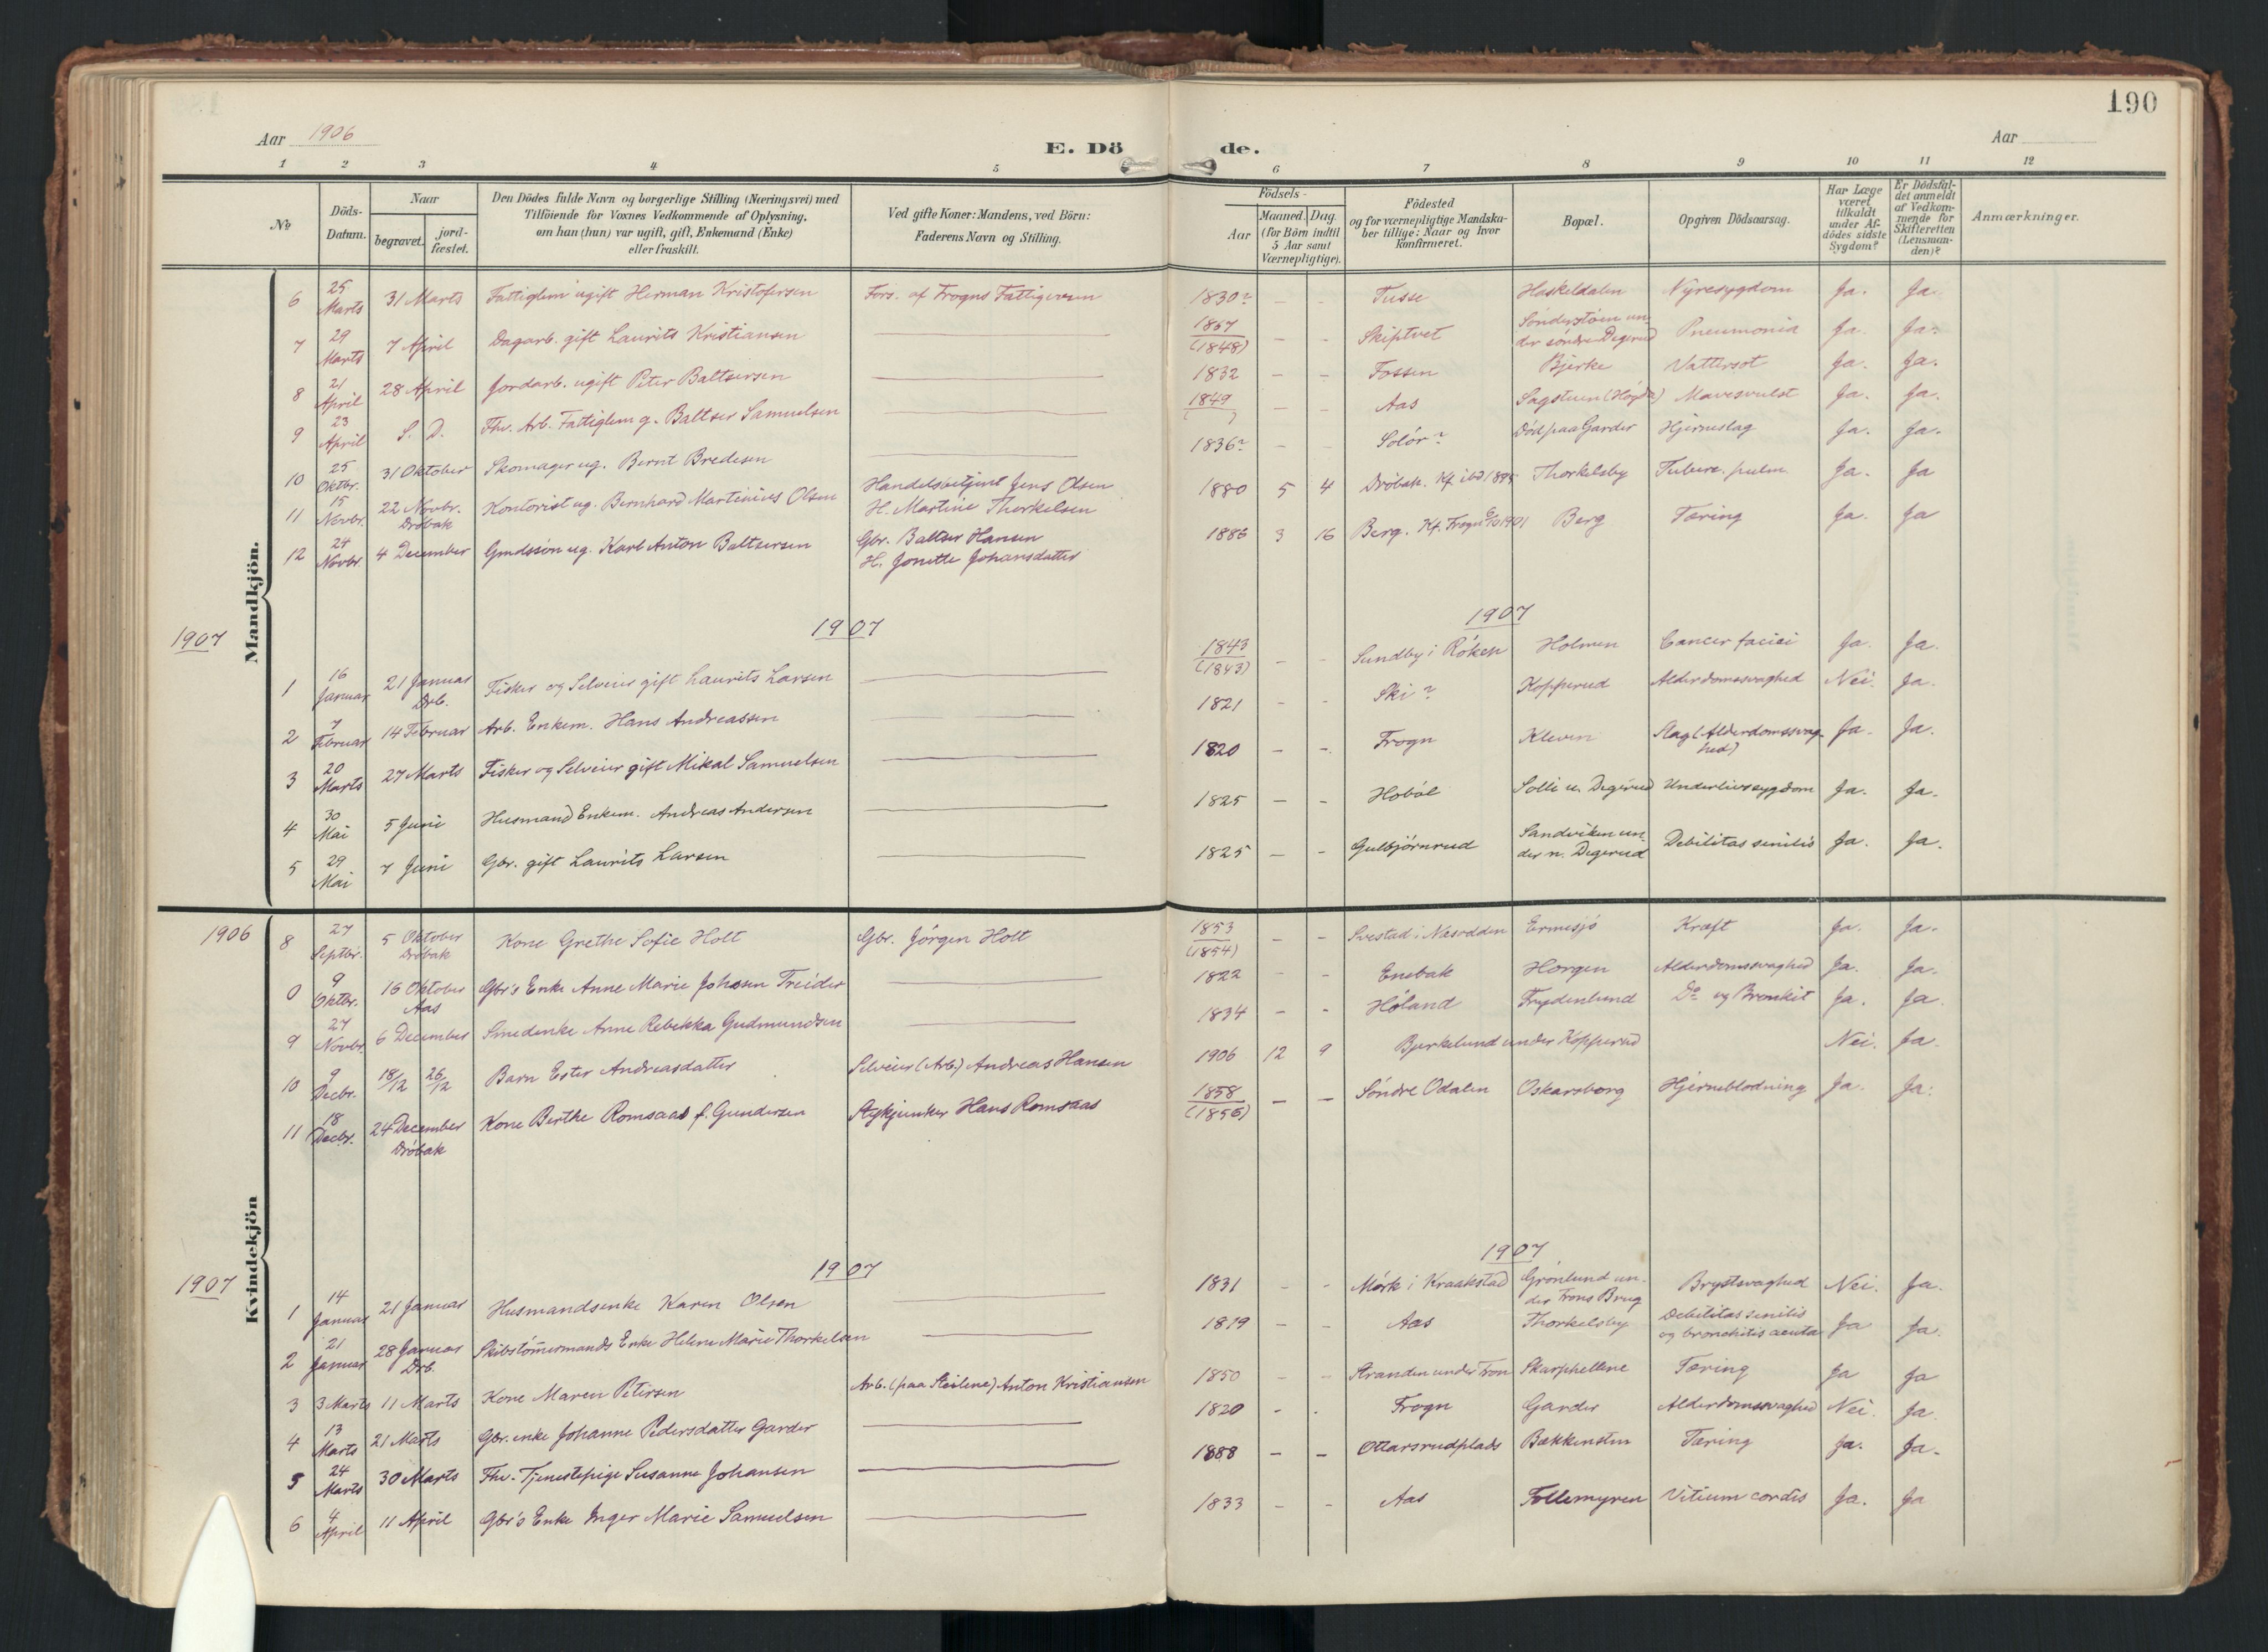 190
Aar 1906
E. Dö de.
Aar
1 2 3 4 5 6 7 8 9 10 11 12
№ Döds-Datum. Naar begravet. jord-fæstet.
Den Dödes fulde Navn og borgerlige Stilling (Næringsvei) med
Tilföiende for Voxnes Vedkommende af Oplysning,
om han (hun) var ugift, gift, Enkemand (Enke)
eller fraskilt.
Ved gifte Koner: Mandens, ved Börn:
Faderens Navn og Stilling.
Födsels-
Aar Maaned. Dag.
(for Börn indtil
5 Aar samt
Værnepligtige).
Födested
og for værnepligtige Mandska-
ber tillige: Naar og hvor
konfirmeret.
Bopæl.
Opgiven Dödsaarsag.
Har Læge
været
tilkaldt
under Af-
dödes sidste
Sygdom?
Er Dödsfal-
det anmeldt
af Vedkom-
mende for
Skifteretten
(Lensman-
den)?
Anmærkninger.
Mandkjön.
6 25 Marts 31 Marts Fattiglem ugift Herman Kristofersen Fors. af Frogns Fattigvesen 1830? – – Tusse Haskeldalen Nyresygdom Ja. Ja.
7 29 Marts 7 April Dagarb. gift Laurits Kristiansen 1857 (1848) – – Skiptvet Sønderstøen under søndre Degerud Pneumonia Ja. Ja.
8 21 April 28 April Jordarb. ugift Peter Baltsersen 1832 – – Fossen Bjerke Vattersot Ja. Ja.
9 23 April S. D. Fhv. Arb. Fattiglem g. Baltser Samuelsen 1849 ( ) – – Aas Sagstuen (Høgda) Mavesvulst Ja. Ja.
10 25 Oktbr. 31 Oktober Skomager ug. Bernt Bredesen 1836? – – Solør? Død paa Garder Hjerneslag Ja. Ja.
11 15 Novbr. 22 Novbr. Drøbak Kontorist ug. Bernhard Martinius Olsen Handelsbetjent Jens Olsen H. Martine Thorkelsen 1880 5 4 Drøbak. Kf. ibd 1895 Thorkelsby Tuberc. pulm. Ja. Ja
12 24 Novbr. 4 December Gmdssøn ug. Karl Anton Baltsersen Gbr. Baltser Hansen H. Jonette Johansdatter 1886 3 16 Berg. Kf. Frogn 6/10 1901 Berg Tæring Ja. Ja
1907 1907 1907
1 16 Januar 21 Januar Drb. Fisker og Selveier gift Laurits Larsen 1843 (1843) – – Sundby i Røken Holmen Cancer faciei Ja. Ja.
2 7 Februar 14 Februar Arb. Enkem. Hans Andreassen 1821 – – Ski? Kopperud Alderdomssvaghed Nei. Ja.
3 20 Marts 27 Marts Fisker og Selveier gift Mikal Samuelsen 1820 – – Frogn Kleven Slag (Alderdomssvaghed) Ja. Ja.
4 30 Mai 5 Juni Husmand Enkem. Andreas Andersen 1825 – – Hobøl Solli u. Degerud Underlivssygdom Ja. Ja.
5 29 Mai 7 Juni Gbr. gift Laurits Larsen 1825 – – Gulbjørnrud Sandviken under n. Degerud Debilitas senilis Ja. Ja.
Kvindekjön
1906
8 27 Septbr. 5 Oktober Drøbak Kone Grethe Sofie Holt Gbr. Jørgen Holt 1853 (1854) – – Svestad i Næsodden Ermesjø Kræft Ja. Ja.
0 9 Oktbr. 16 Oktober Aas Gbr's Enke Anne Marie Johnsen Treider 1822 – – Enebak Horgen Alderdomssvaghed Ja. Ja.
9 27 Novbr. 6 December Smedenke Anne Rebekka Gudmundsen 1834 – – Høland Frydenlund Do og Bronkit Ja. Ja.
10 9 Decbr. 18/12 26/12 Barn Ester Andreasdatter Selveier (Arb.) Andreas Hansen 1906 12 9 Bjerkelund under Kopperud Nei. Ja.
11 18 Decbr. 24 December Drøbak Kone Berthe Romsaas f. Gundersen Stykjunker Hans Romsaas 1858 (1856) – – Søndre Odalen Oskarsborg Hjerneblødning Ja. Ja.
1907 1907 1907
1 14 Januar 21 Januar Husmandsenke Karen Olsen 1831 – – Mørk i Kraakstad Grønlund under Frons Brug Brystsvaghed Nei. Ja.
2 21 Januar 28 Januar Drb. Skibstømmermands Enke Helene Marie Thorkelsen 1819 – – Aas Thorkelsby Debilitas senilis og bronchitis acuta Ja Ja.
3 3 Marts 11 Marts Kone Maren Petersen Arb. (paa Steilene) Anton Kristiansen 1850 – – Stranden under Fron Skarphellene Tæring Ja Ja
4 13 Marts 21 Marts Gbr. enke Johanne Pedersdatter Garder 1820 – – Frogn Garder Alderdomssvaghed Nei. Ja.
5 24 Marts 30 Marts Fhv. Tjenestepige Susanne Johansen 1888 – – Ottarsrudplads Bækkensten Tæring Ja. Ja.
6 4 April 11 April Gbr's Enke Inger Marie Samuelsen 1833 – – Aas Follemyren Vitium cordis Ja. Ja